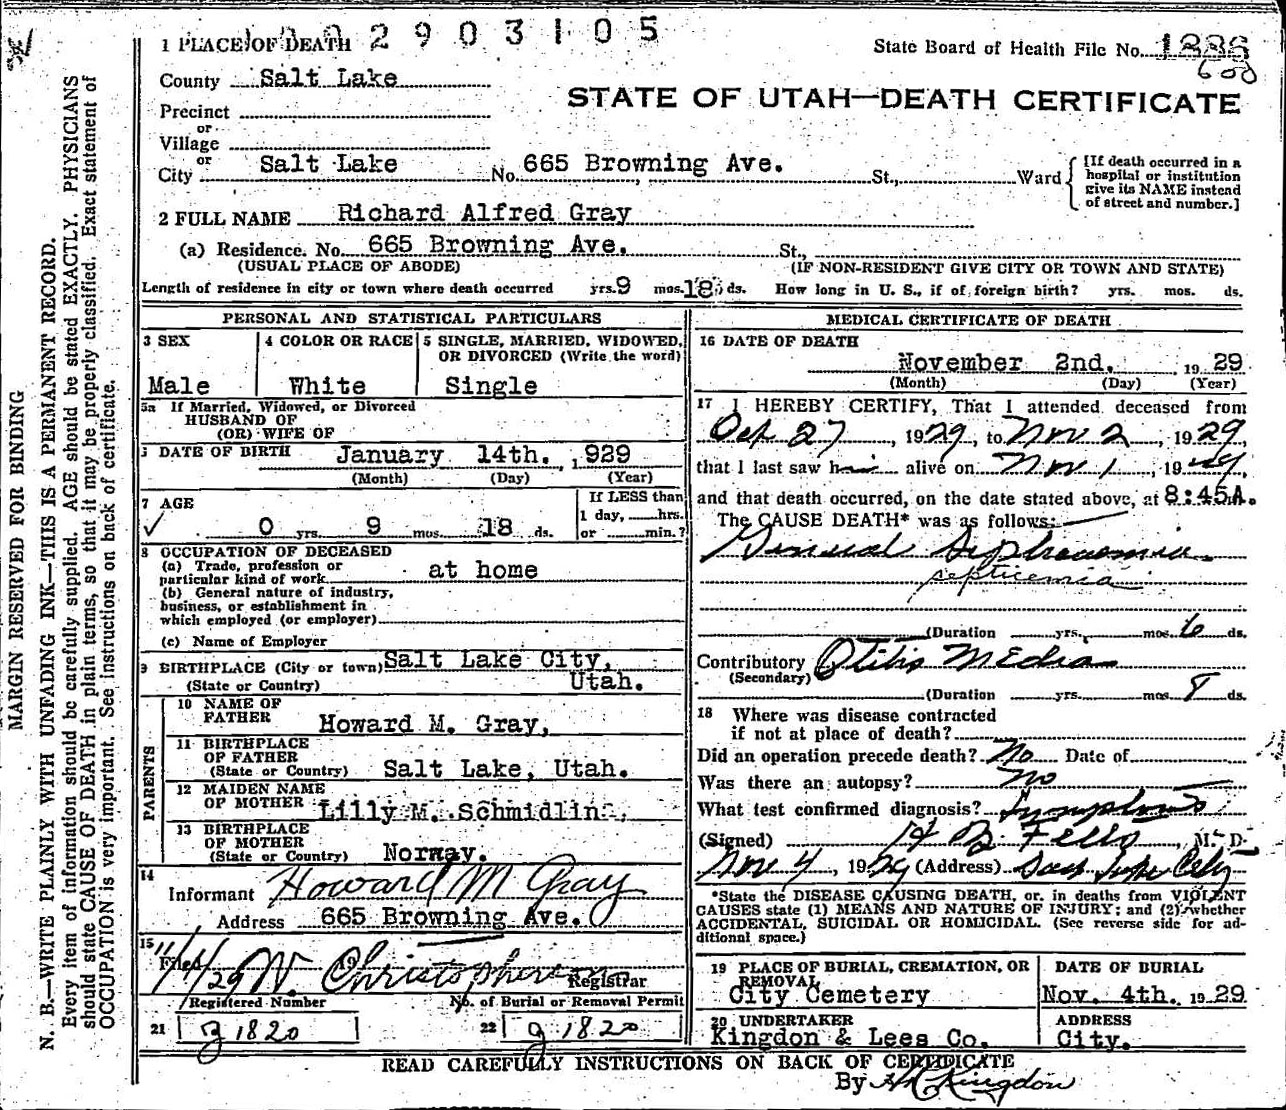 2903105
1 PLACE OF DEATH
State Board of Health File No. 1886
County Salt Lake
STATE OF UTAH—DEATH CERTIFICATE
Precinct
or
Village
or
City Salt Lake No. 665 Browning Ave. St., Ward {[If death occurred in a hospital or institution give its NAME instead of street and number.]
2 FULL NAME Richard Alfred Gray
(a) Residence. No. 665 Browning Ave. St.,
(USUAL PLACE OF ABODE) (IF NON-RESIDENT GIVE CITY OR TOWN AND STATE)
Length of residence in city or town where death occurred yrs. 9 mos. 18 ds. How long in U. S., if of foreign birth? yrs. mos. ds.
PERSONAL AND STATISTICAL PARTICULARS
3 SEX
Male
4 COLOR OR RACE
White
5 SINGLE, MARRIED, WIDOWED,
OR DIVORCED (Write the word)
Single
5a If Married, Widowed, or Divorced
HUSBAND OF
(OR) WIFE OF
DATE OF BIRTH January 14th. 1929
(Month) (Day) (Year)
7 AGE
0 yrs. 9 mos. 18 ds.
If LESS than
1 day, hrs.
or min.?
8 OCCUPATION OF DECEASED
(a) Trade, profession or
particular kind of work at home
(b) General nature of industry,
business, or establishment in
which employed (or employer)
(c) Name of Employer
9 BIRTHPLACE (City or town) Salt Lake City,
(State or Country) Utah.
PARENTS
10 NAME OF
FATHER Howard M. Gray,
11 BIRTHPLACE
OF FATHER
(State or Country) Salt Lake, Utah.
12 MAIDEN NAME
OF MOTHER Lilly M. Schmidlin,
13 BIRTHPLACE
OF MOTHER
(State or Country) Norway.
14
Informant Howard M Gray
Address 665 Browning Ave.
15
Filed 11/4/29 W. Christopherson
Registrar
Registered Number No. of Burial or Removal Permit
21 1820 22 1820
MEDICAL CERTIFICATE OF DEATH
16 DATE OF DEATH
November 2nd. 1929
(Month) (Day) (Year)
17 I HEREBY CERTIFY, That I attended deceased from
Oct 27, 1929, to Nov 2, 1929,
that I last saw him alive on Nov 1, 1929,
and that death occurred, on the date stated above, at 8:45A.m.
The CAUSE DEATH* was as follows:
General Septicaemia
septicemia
(Duration yrs. mos. 6 ds.
Contributory Otitis Media
(Secondary)
(Duration yrs. mos. 8 ds.
18 Where was disease contracted
if not at place of death?
Did an operation precede death? No Date of
Was there an autopsy? No
What test confirmed diagnosis? Symptoms
(Signed) , M. D.
Nov 4, 1929 (Address) Salt Lake City
*State the DISEASE CAUSING DEATH, or, in deaths from VIOLENT
CAUSES state (1) MEANS AND NATURE OF INJURY; and (2) whether
ACCIDENTAL, SUICIDAL OR HOMICIDAL. (See reverse side for ad-
ditional space.)
19 PLACE OF BURIAL, CREMATION, OR
REMOVAL
City Cemetery
DATE OF BURIAL
Nov. 4th. 1929
20 UNDERTAKER
Kingdon & Lees Co.
ADDRESS
City.
READ CAREFULLY INSTRUCTIONS ON BACK OF CERTIFICATE
By Kingdon
MARGIN RESERVED FOR BINDING
N. B.—WRITE PLAINLY WITH UNFADING INK—THIS IS A PERMANENT RECORD.
Every item of information should be carefully supplied. AGE should be stated EXACTLY. PHYSICIANS
should state CAUSE OF DEATH in plain terms, so that it may be properly classified. Exact statement of
OCCUPATION is very important. See instructions on back of certificate.